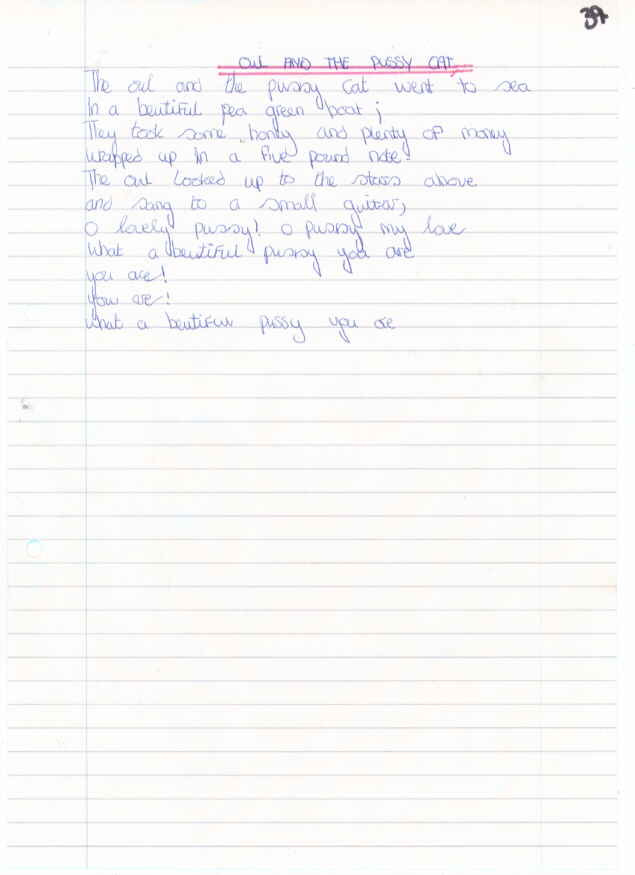 39
OWL AND THE PUSSY CAT
The owl and the pussy Cat went to sea
In a beutiful pea green boat ;
They took some honey and plenty of money
wrapped up in a five pound note.
The owl Looked up to the stars above
and sang to a small guitar,
O lovely pussy! O pussy my love
What a beutiful pussy you are
you are!
you are!
what a beutiful pussy you are